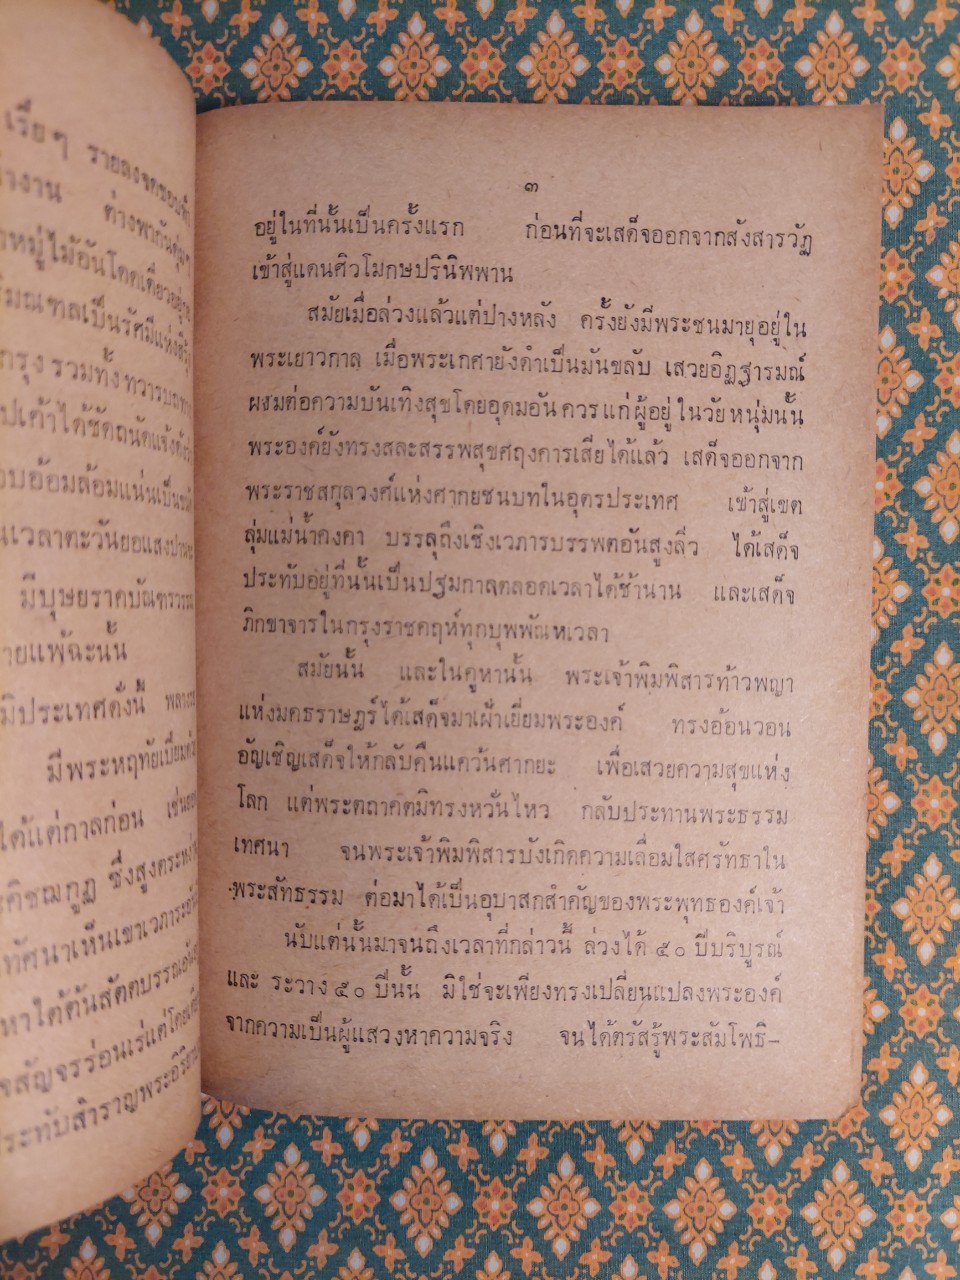 เรื่อยๆ
มีบุษยราคบัณฑรวรรณ
ายแพ้ฉะนั้น
มิประเทศดั่งนี้
มีพระหฤทัยเปี่ยม
ได้แต่กาลก่อน เช่น
ะคิชฌกูฏ ซึ่งสูงตระหง่าน
ทัศนาเห็นเขาเวภาระ
หาใต้ต้นสัตตบรรณ
จสัญจรร่อนเร่แต่โดย
ระทับสำราญพระอิริยาบถ
๓
อยู่ในที่นั้นเป็นครั้งแรก ก่อนที่จะเสด็จออกจากสังสารวัฏ
เข้าสู่แดนศิวโมกษปรินิพพาน
สมัยเมื่อล่วงแล้วแต่ปางหลัง ครั้งยังมีพระชนมายุอยู่ใน
พระเยาวกาล เมื่อพระเกศายังดำเป็นมันขลับ เสวยอิฏฐารมณ์
ผสมต่อความบันเทิงสุขโดยอุดมอันควรแก่ผู้อยู่ในวัยหนุ่มนั้น
พระองค์ยังทรงสละสรรพสุขศฤงคารเสียได้แล้ว เสด็จออกจาก
พระราชสกุลวงศ์แห่งศากยชนบทในอุตรประเทศ เข้าสู่เขต
ลุ่มแม่น้ำคงคา บรรลุถึงเชิงเวภารบรรพตอันสูงลิ่ว ได้เสด็จ
ประทับอยู่ที่นั้นเป็นปฐมกาลตลอดเวลาได้ช้านาน และเสด็จ
ภิกขาจารในกรุงราชคฤห์ทุกบุพพัณหเวลา
สมัยนั้น และในคูหานั้น พระเจ้าพิมพิสารท้าวพญา
แห่งมคธราษฎร์ได้เสด็จมาเฝ้าเยี่ยมพระองค์ ทรงอ้อนวอน
อัญเชิญเสด็จให้กลับคืนแคว้นศากยะ เพื่อเสวยความสุขแห่ง
โลก แต่พระตถาคตมิทรงหวั่นไหว กลับประทานพระธรรม
เทศนา จนพระเจ้าพิมพิสารบังเกิดความเลื่อมใสศรัทธาใน
พระสัทธรรม ต่อมาได้เป็นอุบาสกสำคัญของพระพุทธองค์เจ้า
นับแต่นั้นมาจนถึงเวลาที่กล่าวนี้ ล่วงได้ ๕๐ ปีบริบูรณ์
และ ระวาง ๕๐ ปีนั้น มิใช่จะเพียงทรงเปลี่ยนแปลงพระองค์
จากความเป็นผู้แสวงหาความจริง จนได้ตรัสรู้พระสัมโพธิ-